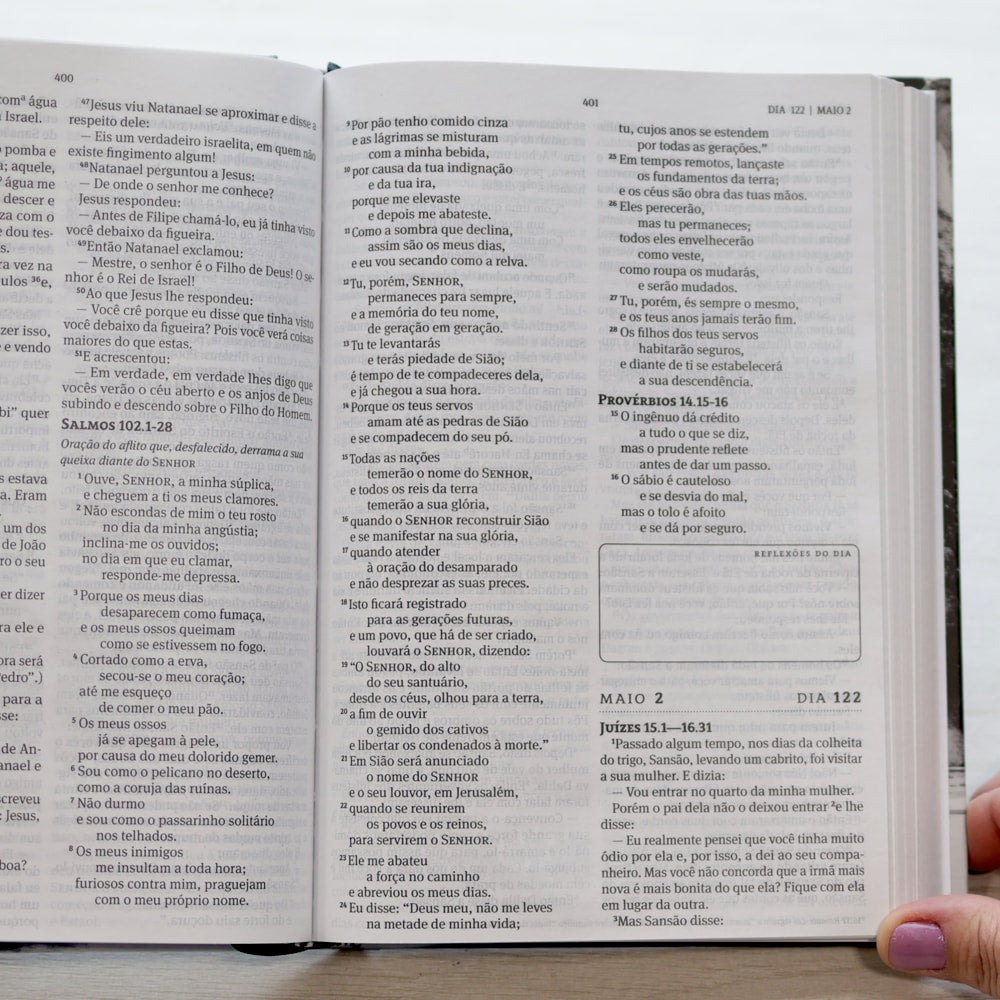 400
com a água
Israel.
pomba e
a; aquele,
água me
descer e
za com o
e dou tes-
s.
ra vez na
ulos ³⁶e,
zer isso,
e vendo
bi” quer
s estava
a. Eram
um dos
de João
ro o seu
er dizer
ra ele e
ora será
edro”.)
para a
sse:
de An-
anael e
screveu
: Jesus,
boa?
⁴⁷Jesus viu Natanael se aproximar e disse a
respeito dele:
— Eis um verdadeiro israelita, em quem não
existe fingimento algum!
⁴⁸Natanael perguntou a Jesus:
— De onde o senhor me conhece?
Jesus respondeu:
— Antes de Filipe chamá-lo, eu já tinha visto
você debaixo da figueira.
⁴⁹Então Natanael exclamou:
— Mestre, o senhor é o Filho de Deus! O se-
nhor é o Rei de Israel!
⁵⁰Ao que Jesus lhe respondeu:
— Você crê porque eu disse que tinha visto
você debaixo da figueira? Pois você verá coisas
maiores do que estas.
⁵¹E acrescentou:
— Em verdade, em verdade lhes digo que
vocês verão o céu aberto e os anjos de Deus
subindo e descendo sobre o Filho do Homem.
SALMOS 102.1-28
Oração do aflito que, desfalecido, derrama a sua
queixa diante do SENHOR
¹ Ouve, SENHOR, a minha súplica,
e cheguem a ti os meus clamores.
² Não escondas de mim o teu rosto
no dia da minha angústia;
inclina-me os ouvidos;
no dia em que eu clamar,
responde-me depressa.
³ Porque os meus dias
desaparecem como fumaça,
e os meus ossos queimam
como se estivessem no fogo.
⁴ Cortado como a erva,
secou-se o meu coração;
até me esqueço
de comer o meu pão.
⁵ Os meus ossos
já se apegam à pele,
por causa do meu dolorido gemer.
⁶ Sou como o pelicano no deserto,
como a coruja das ruínas.
⁷ Não durmo
e sou como o passarinho solitário
nos telhados.
⁸ Os meus inimigos
me insultam a toda hora;
furiosos contra mim, praguejam
com o meu próprio nome.
401
DIA 122 | MAIO 2
⁹ Por pão tenho comido cinza
e as lágrimas se misturam
com a minha bebida,
¹⁰ por causa da tua indignação
e da tua ira,
porque me elevaste
e depois me abateste.
¹¹ Como a sombra que declina,
assim são os meus dias,
e eu vou secando como a relva.
¹² Tu, porém, SENHOR,
permaneces para sempre,
e a memória do teu nome,
de geração em geração.
¹³ Tu te levantarás
e terás piedade de Sião;
é tempo de te compadeceres dela,
e já chegou a sua hora.
¹⁴ Porque os teus servos
amam até as pedras de Sião
e se compadecem do seu pó.
¹⁵ Todas as nações
temerão o nome do SENHOR,
e todos os reis da terra
temerão a sua glória,
¹⁶ quando o SENHOR reconstruir Sião
e se manifestar na sua glória,
¹⁷ quando atender
à oração do desamparado
e não desprezar as suas preces.
¹⁸ Isto ficará registrado
para as gerações futuras,
e um povo, que há de ser criado,
louvará o SENHOR, dizendo:
¹⁹ “O SENHOR, do alto
do seu santuário,
desde os céus, olhou para a terra,
²⁰ a fim de ouvir
o gemido dos cativos
e libertar os condenados à morte.”
²¹ Em Sião será anunciado
o nome do SENHOR
e o seu louvor, em Jerusalém,
²² quando se reunirem
os povos e os reinos,
para servirem o SENHOR.
²³ Ele me abateu
a força no caminho
e abreviou os meus dias.
²⁴ Eu disse: “Deus meu, não me leves
na metade de minha vida;
tu, cujos anos se estendem
por todas as gerações.”
²⁵ Em tempos remotos, lançaste
os fundamentos da terra;
e os céus são obra das tuas mãos.
²⁶ Eles perecerão,
mas tu permaneces;
todos eles envelhecerão
como veste,
como roupa os mudarás,
e serão mudados.
²⁷ Tu, porém, és sempre o mesmo,
e os teus anos jamais terão fim.
²⁸ Os filhos dos teus servos
habitarão seguros,
e diante de ti se estabelecerá
a sua descendência.
PROVÉRBIOS 14.15-16
¹⁵ O ingênuo dá crédito
a tudo o que se diz,
mas o prudente reflete
antes de dar um passo.
¹⁶ O sábio é cauteloso
e se desvia do mal,
mas o tolo é afoito
e se dá por seguro.
REFLEXÕES DO DIA
MAIO 2 DIA 122
JUÍZES 15.1—16.31
¹Passado algum tempo, nos dias da colheita
do trigo, Sansão, levando um cabrito, foi visitar
a sua mulher. E dizia:
— Vou entrar no quarto da minha mulher.
Porém o pai dela não o deixou entrar ²e lhe
disse:
— Eu realmente pensei que você tinha muito
ódio por ela e, por isso, a dei ao seu compa-
nheiro. Mas você não concorda que a irmã mais
nova é mais bonita do que ela? Fique com ela
em lugar da outra.
³Mas Sansão disse: